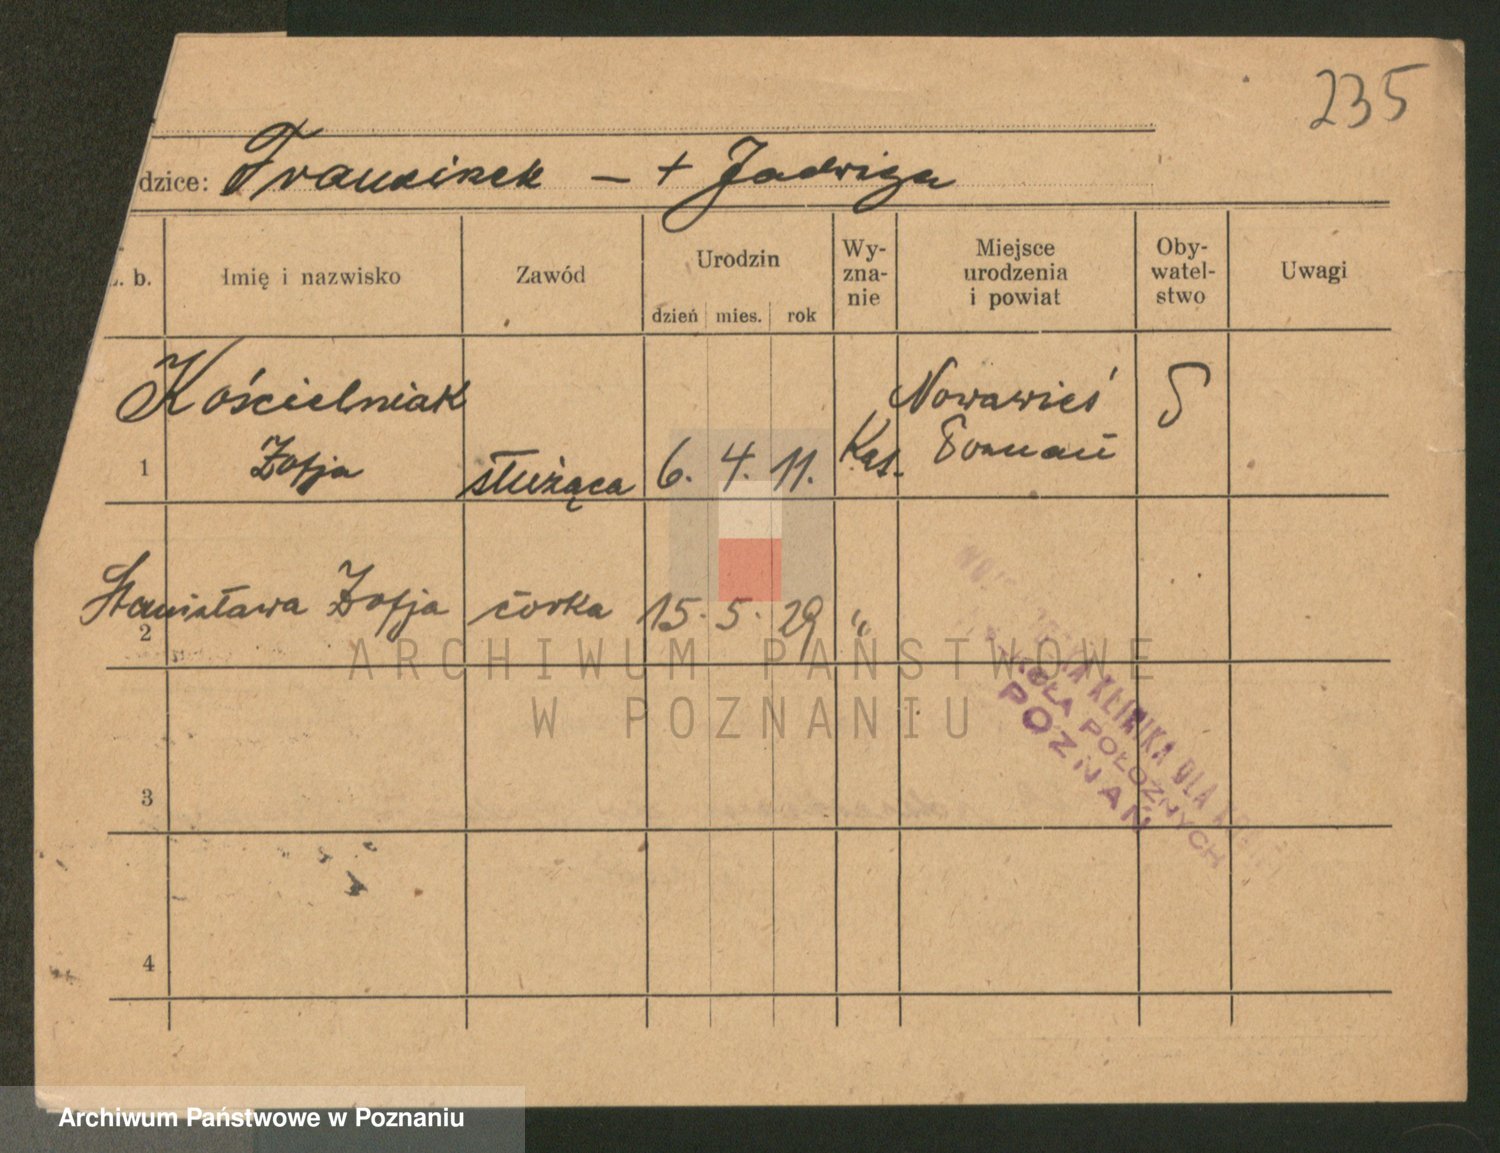 235
dzice: Franciszek – + Jadwiga
L. b. Imię i nazwisko Zawód Urodzin dzień mies. rok Wy-zna-nie Miejsce urodzenia i powiat Oby-watel-stwo Uwagi
Kościelniak Nowawieś
1 Zofja służąca 6. 4. 11. Kat. Poznań
Stanisława Zofja córka 15. 5. 29 "
2
3
4
KLINIKA DLA
POŁOŻNYCH
POZNAŃ
ARCHIWUM PAŃSTWOWE
W POZNANIU
Archiwum Państwowe w Poznaniu